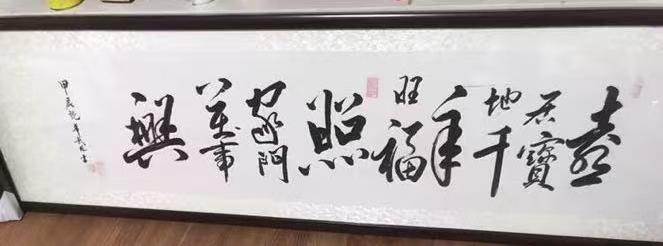 喜
居寶
地千
年
旺福
照
家門
萬事
興
甲辰龍年